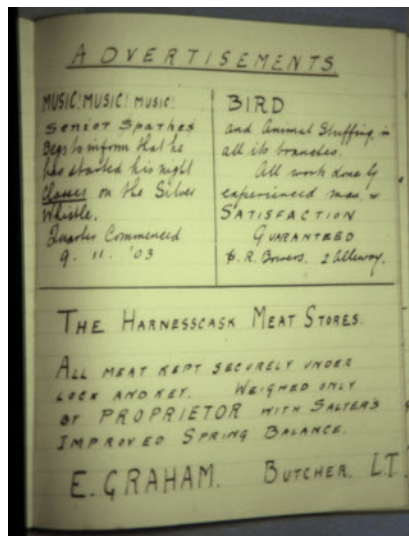 ADVERTISEMENTS
MUSIC! MUSIC! MUSIC!
Senior Spathes
Begs to inform that he
has started his night
Classes on the Silver
Whistle.
Quarter Commenced
9. 11. '03
BIRD
and Animal Stuffing in
all its branches.
All work done by
experienced man &
SATISFACTION
GUARANTEED
R. Bowers. 2 Alleway.
THE HARNESSCASK MEAT STORES.
ALL MEAT KEPT SECURELY UNDER
LOCK AND KEY. WEIGHED ONLY
BY PROPRIETOR WITH SALTER'S
IMPROVED SPRING BALANCE.
E. GRAHAM. BUTCHER. L.T.